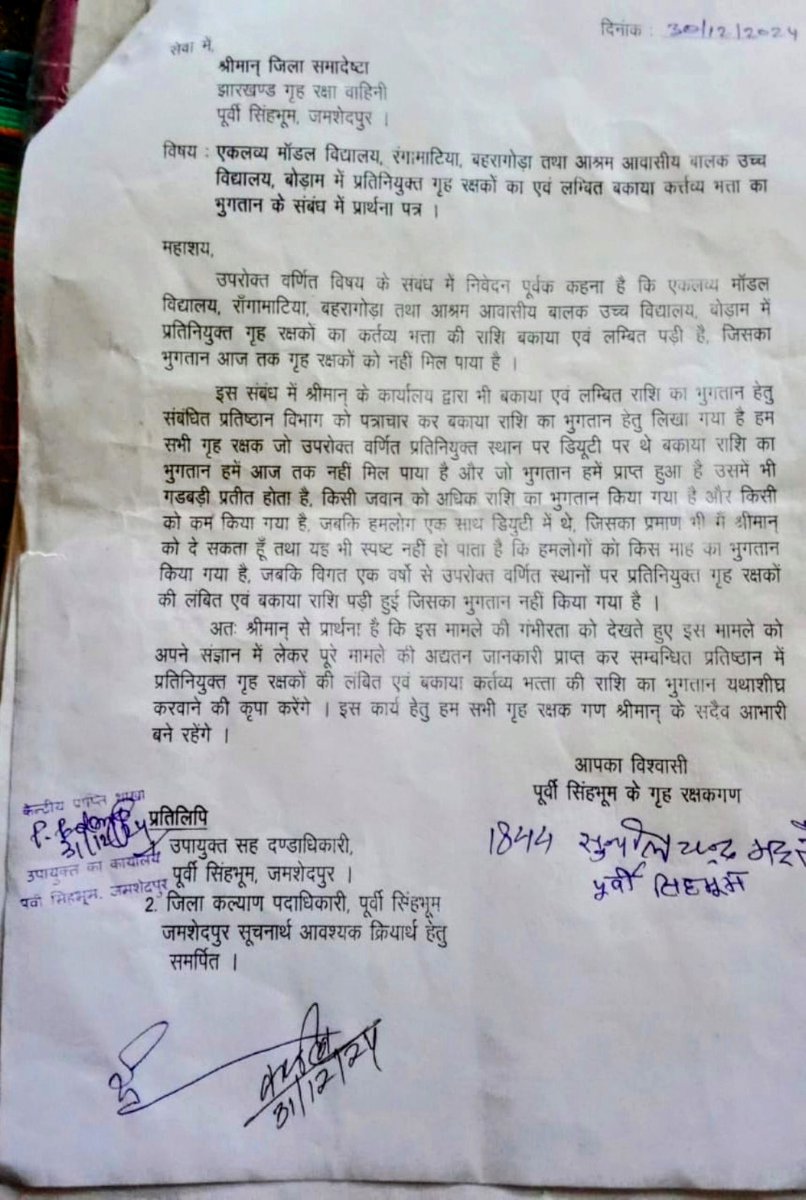 दिनांक : 30/12/2024
सेवा में,
श्रीमान् जिला समादेष्टा
झारखण्ड गृह रक्षा वाहिनी
पूर्वी सिंहभूम, जमशेदपुर ।
विषय : एकलव्य मॉडल विद्यालय, रंगामाटिया, बहरागोड़ा तथा आश्रम आवासीय बालक उच्च
विद्यालय, बोड़ाम में प्रतिनियुक्त गृह रक्षकों का एवं लम्बित बकाया कर्त्तव्य भत्ता का
भुगतान के संबंध में प्रार्थना पत्र ।
महाशय,
उपरोक्त वर्णित विषय के संबंध में निवेदन पूर्वक कहना है कि एकलव्य मॉडल
विद्यालय, राँगामाटिया, बहरागोड़ा तथा आश्रम आवासीय बालक उच्च विद्यालय, बोड़ाम में
प्रतिनियुक्त गृह रक्षकों का कर्तव्य भत्ता की राशि बकाया एवं लम्बित पड़ी है, जिसका
भुगतान आज तक गृह रक्षकों को नहीं मिल पाया है ।
इस संबंध में श्रीमान् के कार्यालय द्वारा भी बकाया एवं लम्बित राशि का भुगतान हेतु
संबंधित प्रतिष्ठान विभाग को पत्राचार कर बकाया राशि का भुगतान हेतु लिखा गया है हम
सभी गृह रक्षक जो उपरोक्त वर्णित प्रतिनियुक्त स्थान पर डियूटी पर थे बकाया राशि का
भुगतान हमें आज तक नहीं मिल पाया है और जो भुगतान हमें प्राप्त हुआ है उसमें भी
गडबड़ी प्रतीत होता है, किसी जवान को अधिक राशि का भुगतान किया गया है और किसी
को कम किया गया है, जबकि हमलोग एक साथ डियुटी में थे, जिसका प्रमाण भी मैं श्रीमान्
को दे सकता हूँ तथा यह भी स्पष्ट नहीं हो पाता है कि हमलोगों को किस माह का भुगतान
किया गया है, जबकि विगत एक वर्षो से उपरोक्त वर्णित स्थानों पर प्रतिनियुक्त गृह रक्षकों
की लंबित एवं बकाया राशि पड़ी हुई जिसका भुगतान नहीं किया गया है ।
अतः श्रीमान् से प्रार्थना है कि इस मामले की गंभीरता को देखते हुए इस मामले को
अपने संज्ञान में लेकर पूरे मामले की अद्यतन जानकारी प्राप्त कर सम्बन्धित प्रतिष्ठान में
प्रतिनियुक्त गृह रक्षकों की लंबित एवं बकाया कर्तव्य भत्त्ता की राशि का भुगतान यथाशीघ्र
करवाने की कृपा करेंगे । इस कार्य हेतु हम सभी गृह रक्षक गण श्रीमान् के सदैव आभारी
बने रहेंगे ।
आपका विश्वासी
पूर्वी सिंहभूम के गृह रक्षकगण
1844
चन्द्र
पूर्वी सिंहभूम
केन्द्रीय प्राप्ति शाखा
31/12/24
उपायुक्त का कार्यालय
पूर्वी सिंहभूम, जमशेदपुर
प्रतिलिपि
उपायुक्त सह दण्डाधिकारी,
पूर्वी सिंहभूम, जमशेदपुर ।
2. जिला कल्याण पदाधिकारी, पूर्वी सिंहभूम
जमशेदपुर सूचनार्थ आवश्यक क्रियार्थ हेतु
समर्पित ।
31/12/24